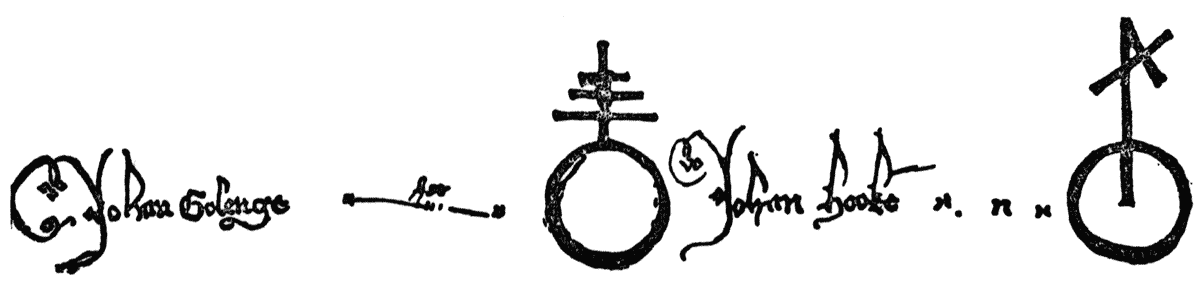 Johan Golenge Johan Hooke